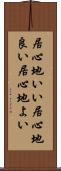 居心地いい居心地
良い居心地よい